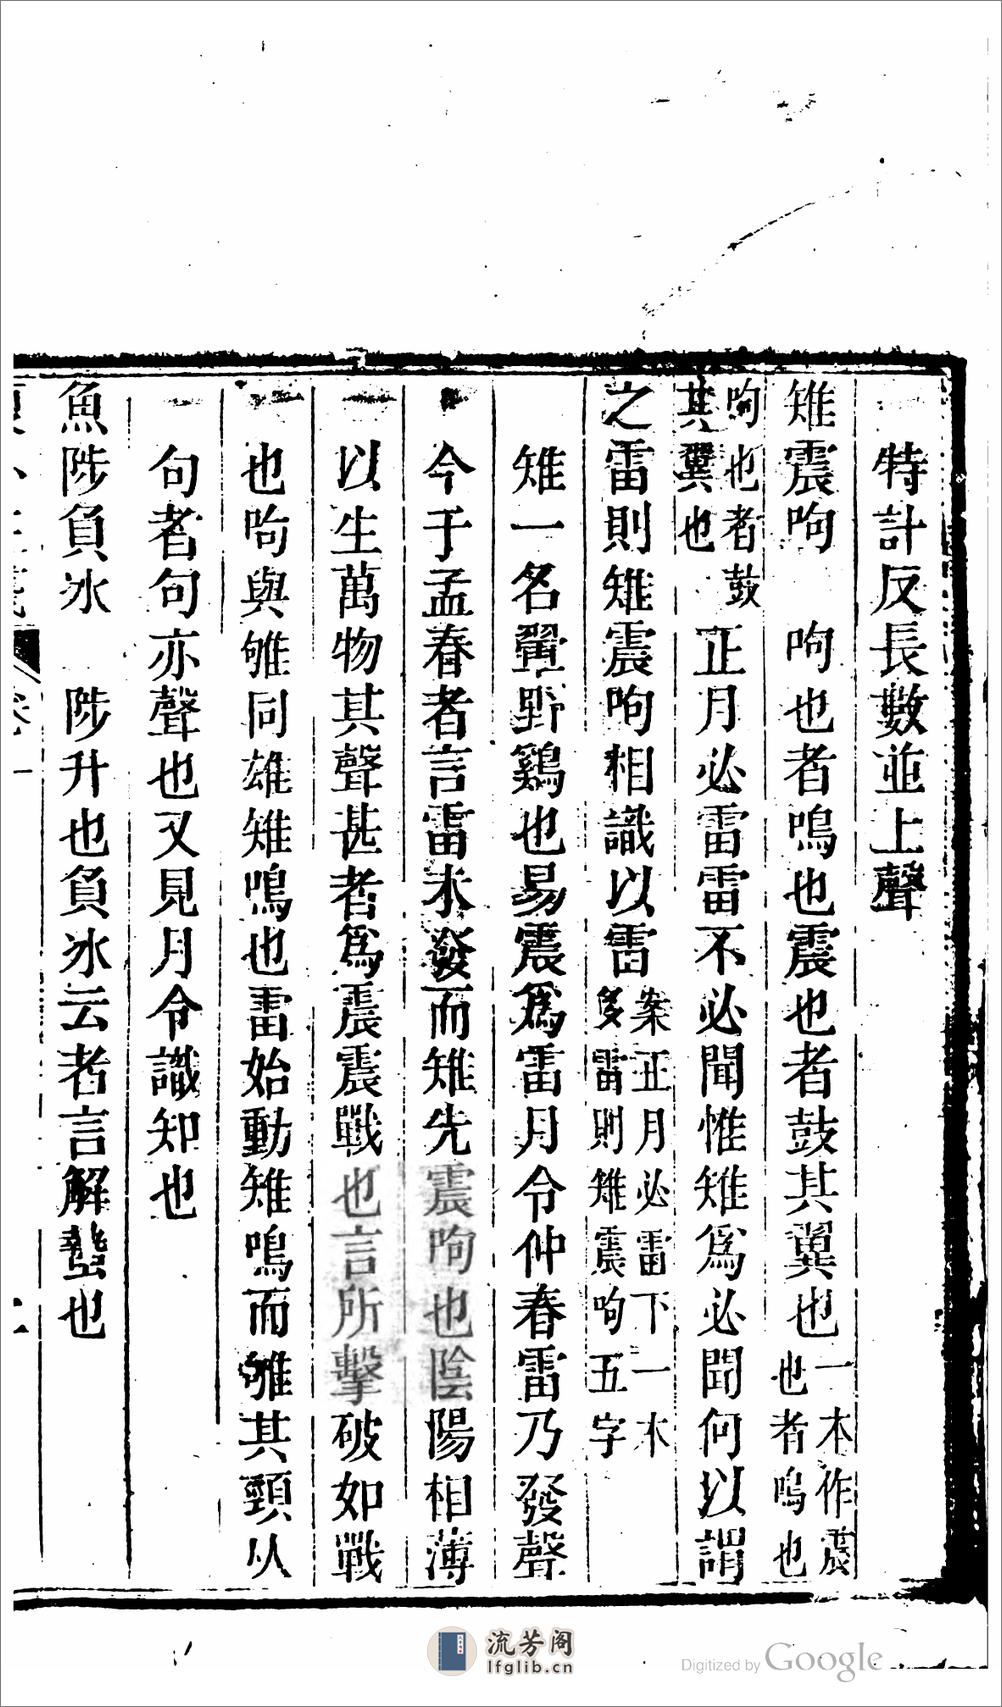 特計反長數並上聲
雉震呴　呴也者鳴也震也者鼓其翼也一本作震也者鳴也
呴也者鼓其翼也　正月必雷雷不必聞惟雉爲必聞何以謂
之雷則雉震呴相識以雷案正月必雷下一本多雷則雉震呴五字
雉一名翟野鷄也易震爲雷月令仲春雷乃發聲
今于孟春者言雷未發而雉先震呴也陰陽相薄
以生萬物其聲甚者爲震震戰也言所擊破如戰
也呴與雊同雄雉鳴也雷始動雉鳴而雊其頸从
句者句亦聲也又見月令識知也
魚陟負冰　陟升也負冰云者言解蟄也
流芳阁
lfglib.cn
Digitized by Google